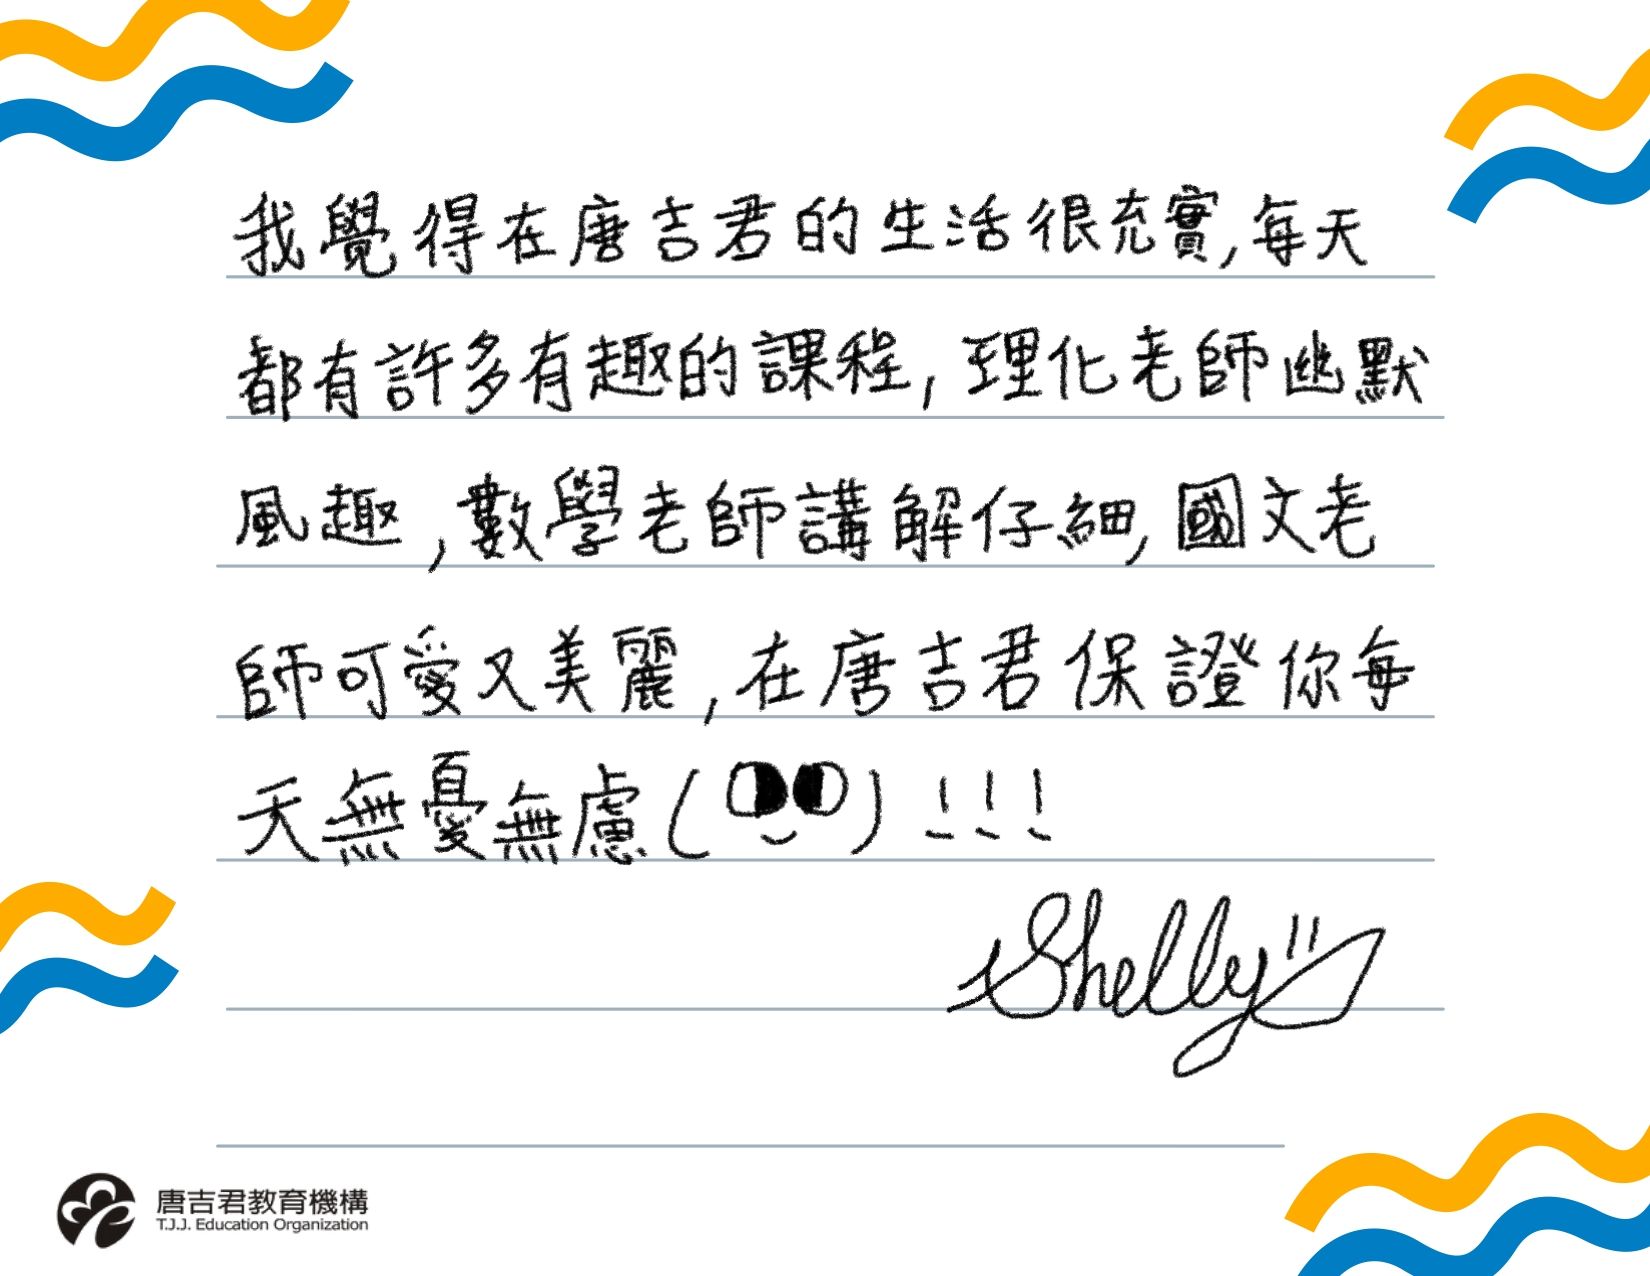 我覺得在唐吉君的生活很充實,每天
都有許多有趣的課程,理化老師幽默
風趣,數學老師講解仔細,國文老
師可愛又美麗,在唐吉君保證你每
天無憂無慮( )!!!
Shelly
唐吉君教育機構
T.J.J. Education Organization